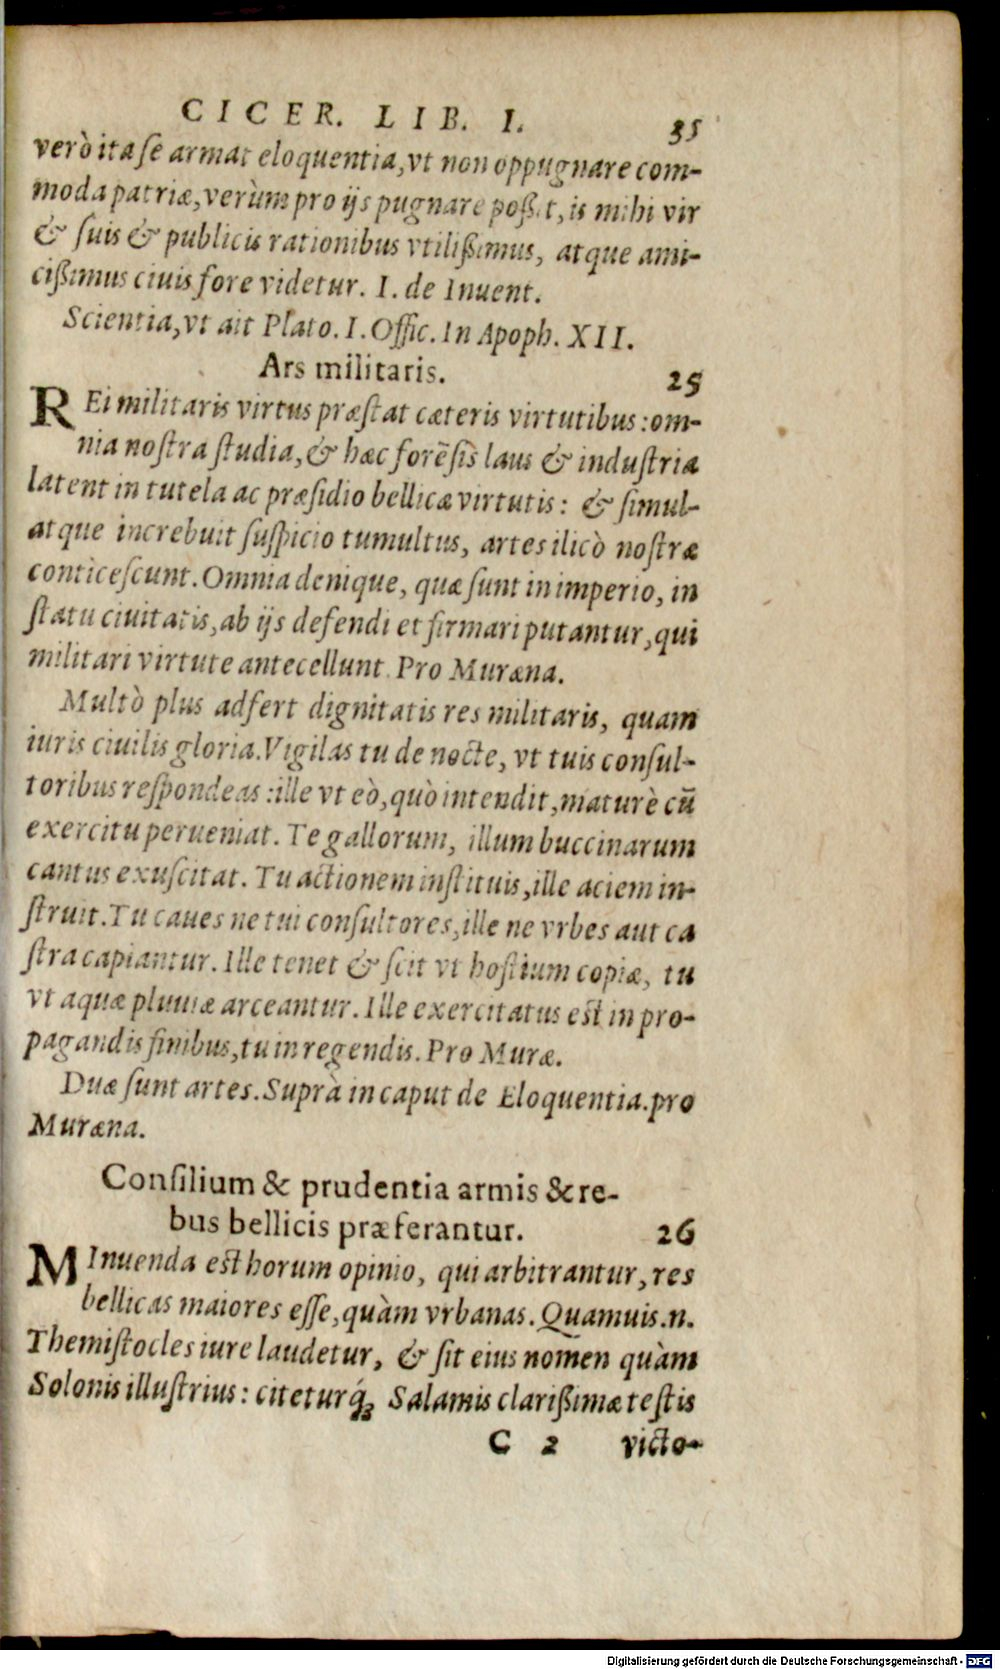 CICER. LIB. I. 35
verò ita se armat eloquentia, vt non oppugnare com-
moda patriæ, verùm pro ijs pugnare poßit, is mihi vir
& suis & publicis rationibus vtilißimus, atque ami-
cißimus ciuis fore videtur. I. de Inuent.
Scientia, vt ait Plato. I. Offic. In Apoph. XII.
Ars militaris. 25
REi militaris virtus præstat cæteris virtutibus: om-
nia nostra studia, & hæc forēsis laus & industria
latent in tutela ac præsidio bellicæ virtutis: & simul-
atque increbuit suspicio tumultus, artes ilicò nostræ
conticescunt. Omnia denique, quæ sunt in imperio, in
statu ciuitatis, ab ijs defendi et firmari putantur, qui
militari virtute antecellunt. Pro Muræna.
Multò plus adfert dignitatis res militaris, quam
iuris ciuilis gloria. Vigilas tu de nocte, vt tuis consul-
toribus respondeas: ille vt eò, quò intendit, maturè cū
exercitu perueniat. Te gallorum, illum buccinarum
cantus exuscitat. Tu actionem instituis, ille aciem in-
struit. Tu caues ne tui consultores, ille ne vrbes aut ca
stra capiantur. Ille tenet & scit vt hostium copiæ, tu
vt aquæ pluuiæ arceantur. Ille exercitatus est in pro-
pagandis finibus, tu in regendis. Pro Muræ.
Duæ sunt artes. Suprà in caput de Eloquentia. pro
Muræna.
Consilium & prudentia armis & re-
bus bellicis præferantur. 26
MInuenda est horum opinio, qui arbitrantur, res
bellicas maiores esse, quàm vrbanas. Quamuis.n.
Themistocles iure laudetur, & sit eius nomen quàm
Solonis illustrius: citeturq́; Salamis clarißimæ testis
C 2 victo-
Digitalisierung gefördert durch die Deutsche Forschungsgemeinschaft - DFG